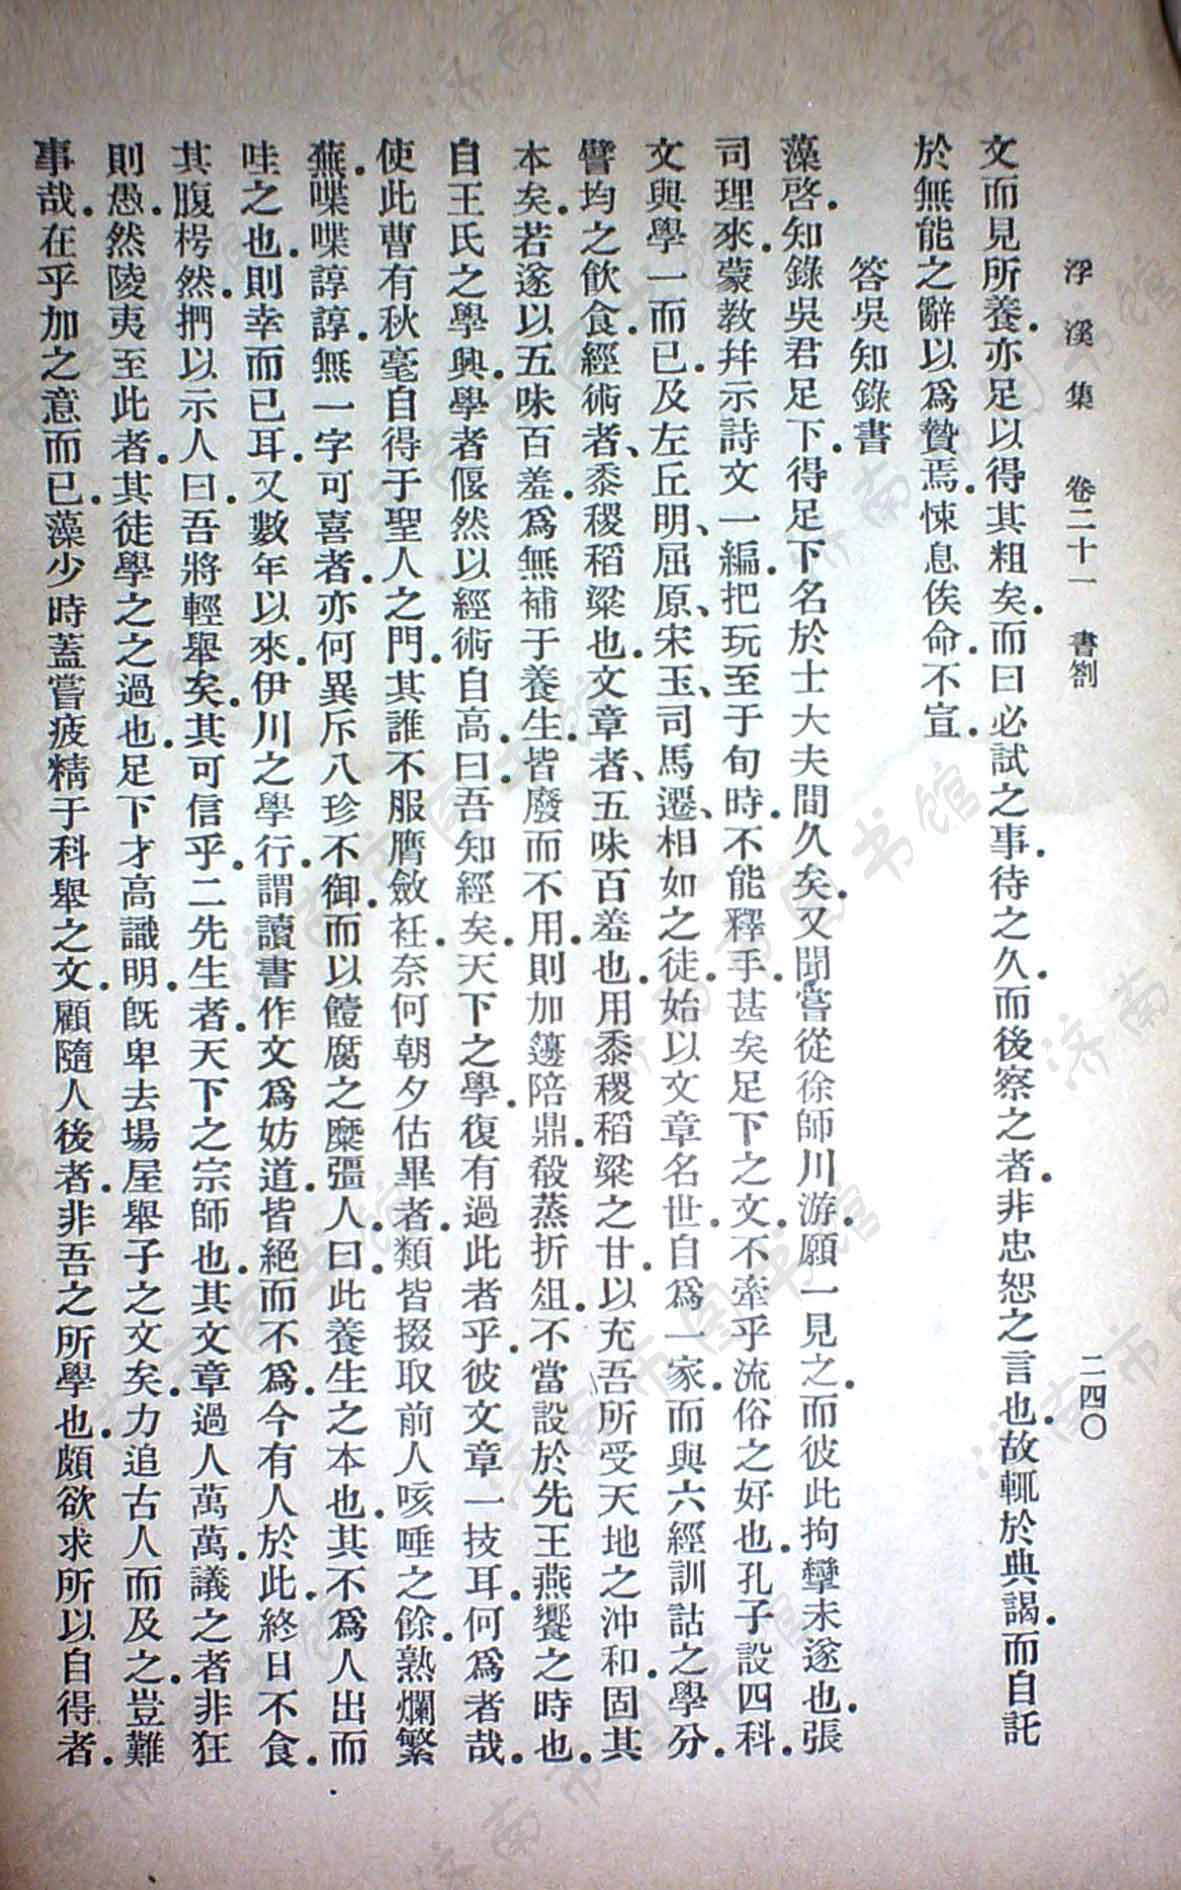 浮溪集 卷二十一 書劄 二四〇
文而見所養．亦足以得其粗矣．而曰必試之事．待之久．而後察之者．非忠恕之言也．故輒於典謁．而自託
於無能之辭以爲贄焉．悚息俟命．不宣．
答吳知錄書
藻啓．知錄吳君足下．得足下名於士大夫間久矣．又聞嘗從徐師川游．願一見之．而彼此拘攣未遂也．張
司理來．蒙教幷示詩文一編．把玩至于旬時．不能釋手．甚矣足下之文．不牽乎流俗之好也．孔子設四科．
文與學一而已．及左丘明、屈原、宋玉、司馬遷、相如之徒．始以文章名世．自爲一家．而與六經訓詁之學分．
譬均之飲食．經術者、黍稷稻粱也．文章者、五味百羞也．用黍稷稻粱之甘．以充吾所受天地之沖和．固其
本矣．若遂以五味百羞．爲無補于養生．皆廢而不用．則加籩陪鼎．殽蒸折俎．不當設於先王燕饗之時也．
自王氏之學興．學者偃然以經術自高．曰．吾知經矣．天下之學．復有過此者乎．彼文章一技耳．何爲者哉．
使此曹有秋毫自得于聖人之門．其誰不服膺斂衽．奈何朝夕佔畢者．類皆掇取前人咳唾之餘．熟爛繁
蕪．喋喋諄諄．無一字可喜者．亦何異斥八珍不御．而以饐腐之糜彊人．曰．此養生之本也．其不爲人出而
哇之也．則幸而已耳．又數年以來．伊川之學行．謂讀書作文爲妨道．皆絕而不爲．今有人於此．終日不食．
其腹枵然．捫以示人．曰．吾將輕舉矣．其可信乎．二先生者．天下之宗師也．其文章過人萬萬．議之者非狂
則愚．然陵夷至此者．其徒學之之過也．足下才高識明．旣卑去場屋舉子之文矣．力追古人而及之．豈難
事哉．在乎加之意而已．藻少時蓋嘗疲精于科舉之文．顧隨人後者．非吾之所學也．頗欲求所以自得者．